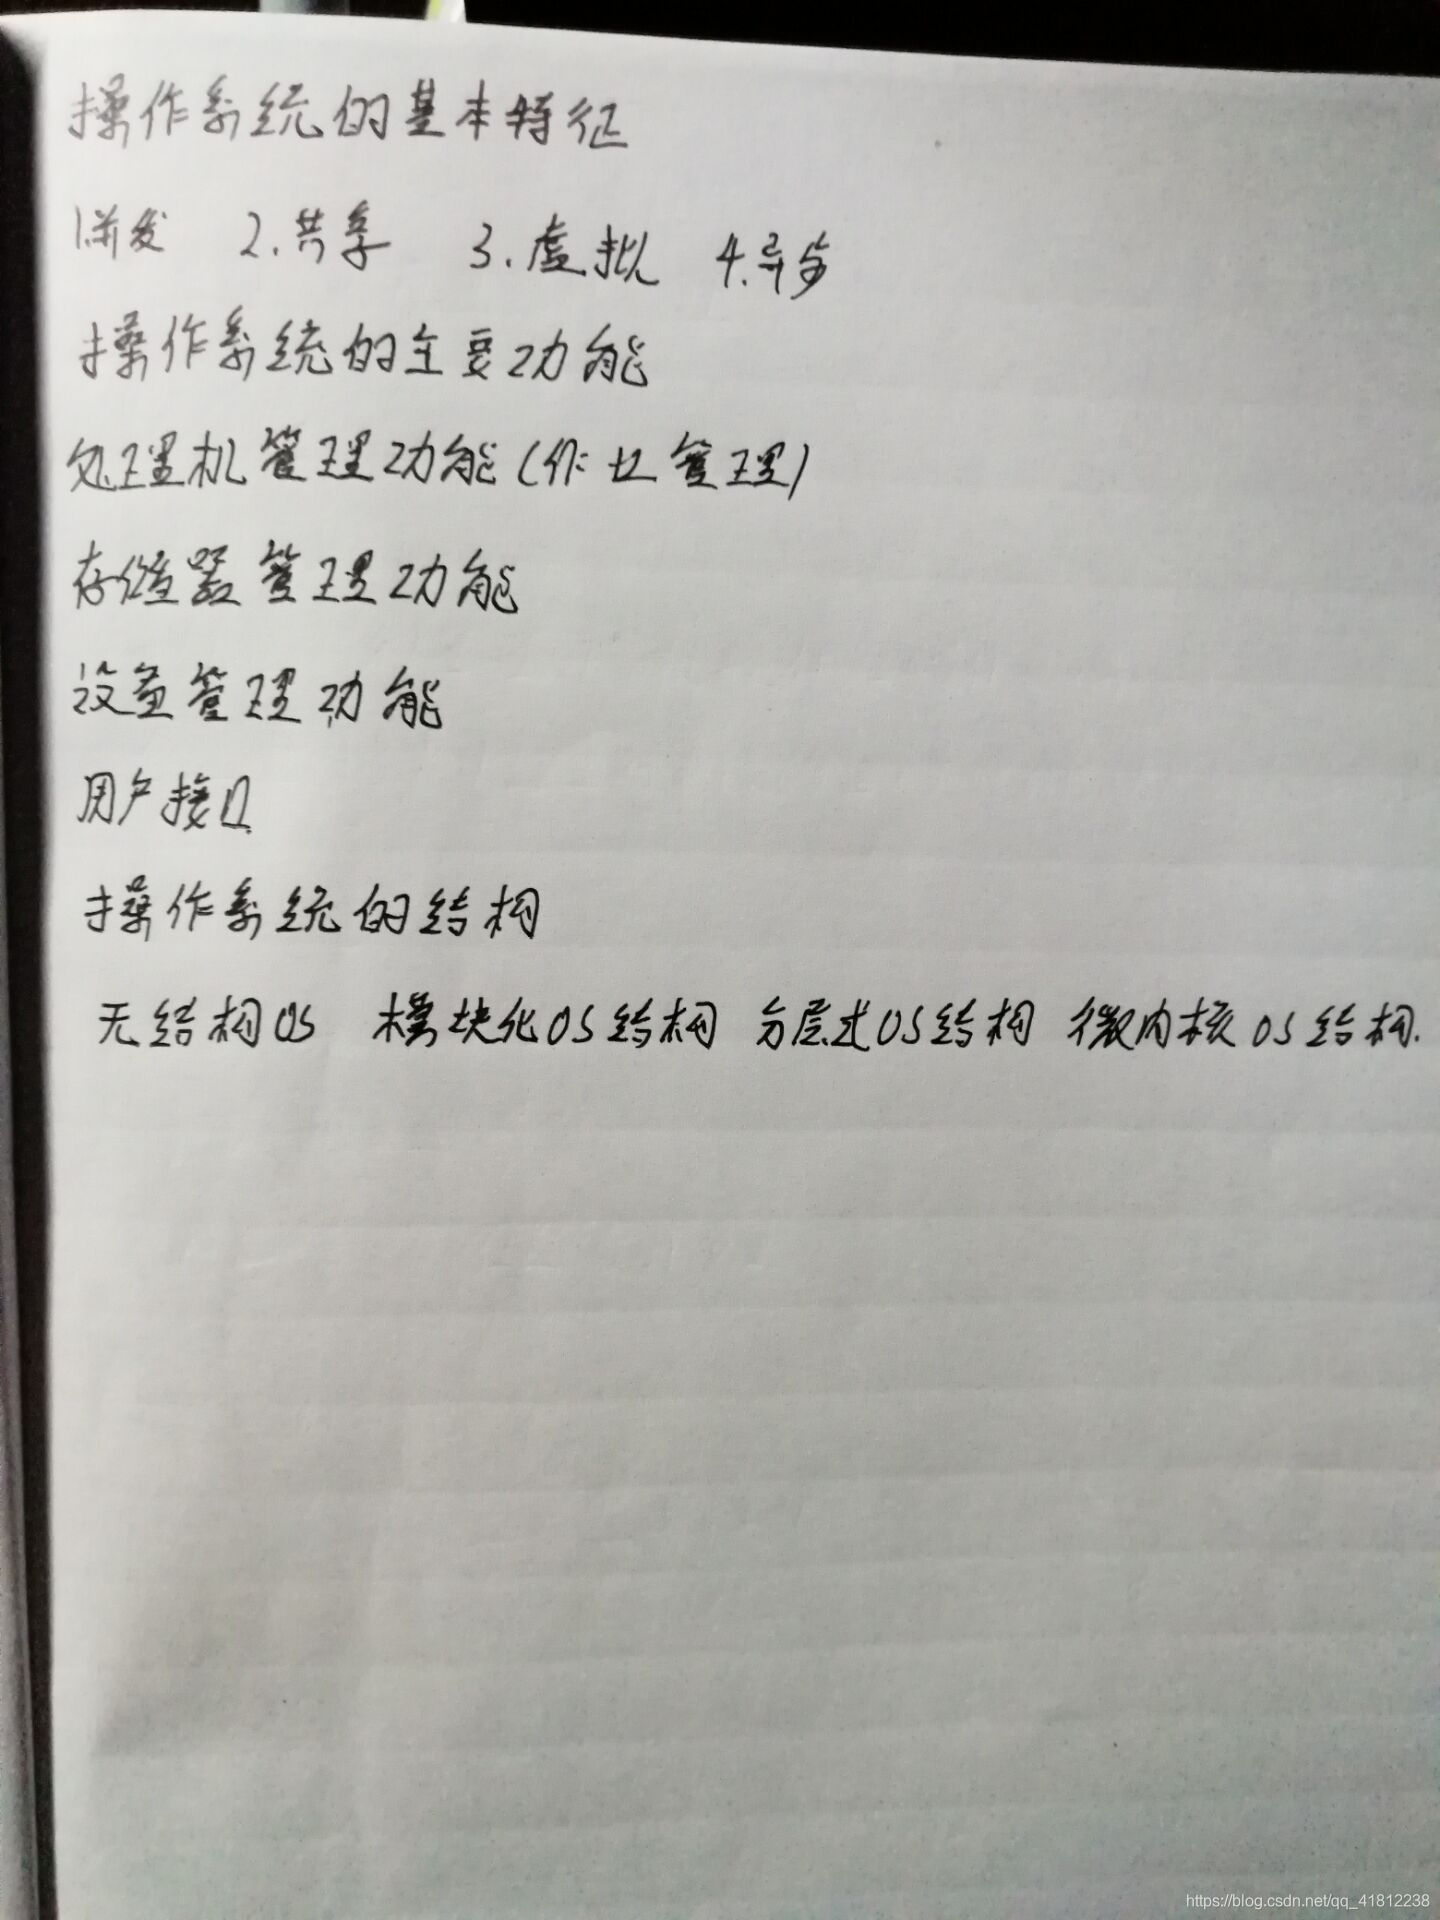 操作系统的基本特征
1.并发 2.共享 3.虚拟 4.异步
操作系统的主要功能
处理机管理功能(作业管理)
存储器管理功能
设备管理功能
用户接口
操作系统的结构
无结构OS 模块化OS结构 分层式OS结构 微内核OS结构.
https://blog.csdn.net/qq_41812238